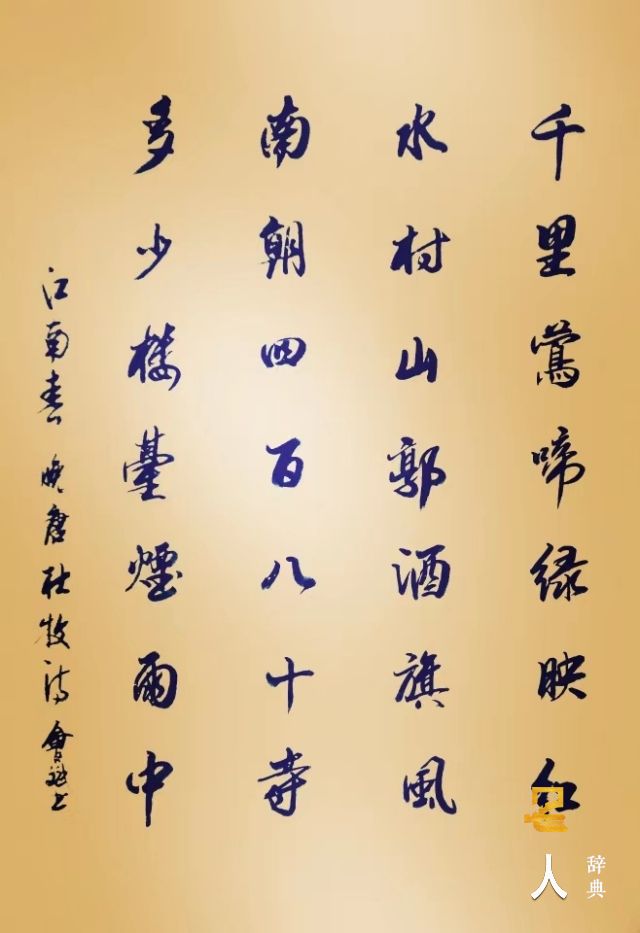 千里鶯啼绿映红
水村山郭酒旗風
南朝四百八十寺
多少樓臺煙雨中
江南春 晚唐杜牧诗 會书
人
辞典